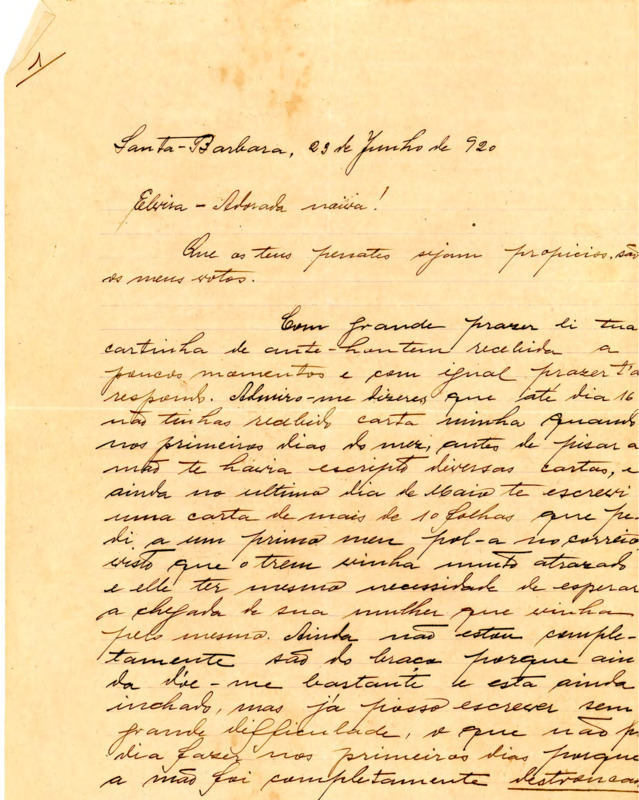 1
Santa-Barbara, 23 de Junho de 920
Elvira - Adorada noiva!
Que os teus penates sejam propicios, são
os meus votos.
Com grande prazer li tua
cartinha de ante-hontem recebida a
poucos momentos e com igual prazer t'a
respondo. Admiro-me dizeres que até dia 16
não tinhas recebido carta minha quando
nos primeiros dias do mez, antes de pisar a
mão te havia escripto diversas cartas, e
ainda no ultimo dia de Maio te escrevi
uma carta de mais de 10 folhas que pe-
di a um primo meu pol-a no correio
visto que o trem vinha muito atrazado
e elle ter mesmo necessidade de esperar
a chegada de sua mulher que vinha
pelo mesmo. Ainda não estou comple-
tamente são do braço porque ain
da dóe-me bastante e esta ainda
inchado, mas já posso escrever sem
grande difficulade, o que não p
dia fazer nos primeiros dias porque
a mão foi completamente destroncad